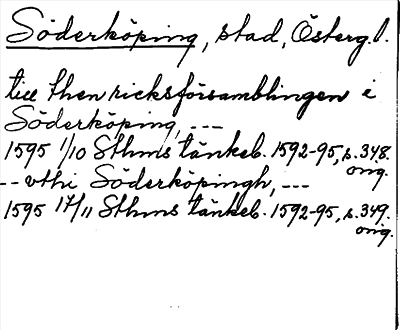 Söderköping, stad, Österg. l.
till then ricksförsamblingen i
Söderköping, ---
1595 1/10 Sthms tänkeb. 1592-95, s. 348.
orig.
-- vthi Söderköpingh, ---
1595 17/11 Sthms tänkeb. 1592-95, s. 349.
orig.